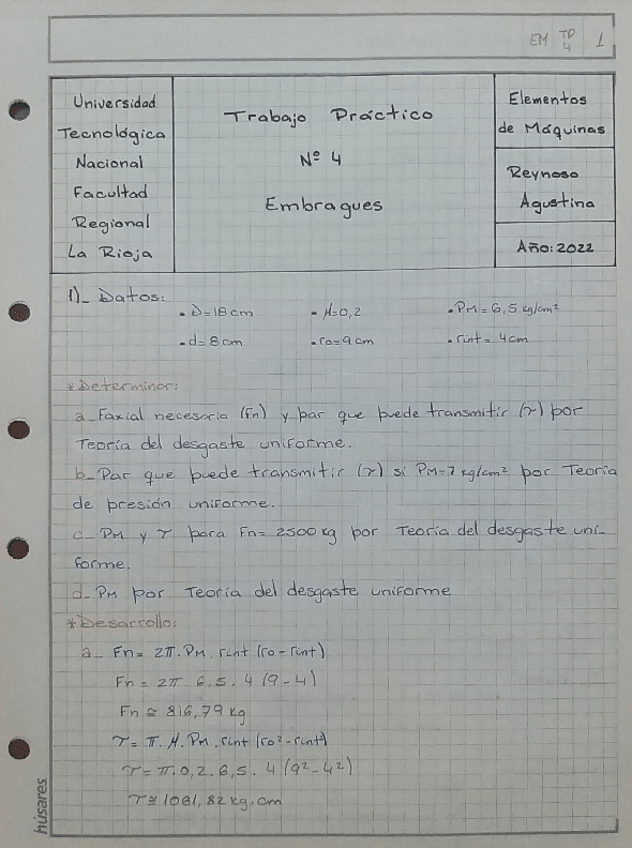 EM TP 4 1
Universidad
Tecnológica
Nacional
Facultad
Regional
La Rioja
Trabajo Práctico
Nº 4
Embragues
Elementos
de Máquinas
Reynoso
Agustina
Año: 2022
1)_ Datos:
• D=18cm • μ=0,2 • PM=6,5 kg/cm²
• d=8cm • ro=9cm • rint=4cm
* Determinar:
a_ Faxial necesaria (Fn) y par que puede transmitir (τ) por
Teoría del desgaste uniforme.
b_ Par que puede transmitir (τ) si PM=7 kg/cm² por Teoría
de presión uniforme.
c_ PM y τ para Fn=2500kg por Teoría del desgaste uni_
forme.
d_ PM por Teoría del desgaste uniforme
* Desarrollo:
a_ Fn= 2π.PM.rint (ro-rint)
Fn= 2π.6,5.4 (9-4)
Fn≅ 816,79 kg
τ= π.μ.PM.rint (ro²-rint²)
τ= π.0,2.6,5.4 (9²-4²)
τ≅1061,82 kg.cm
húsares